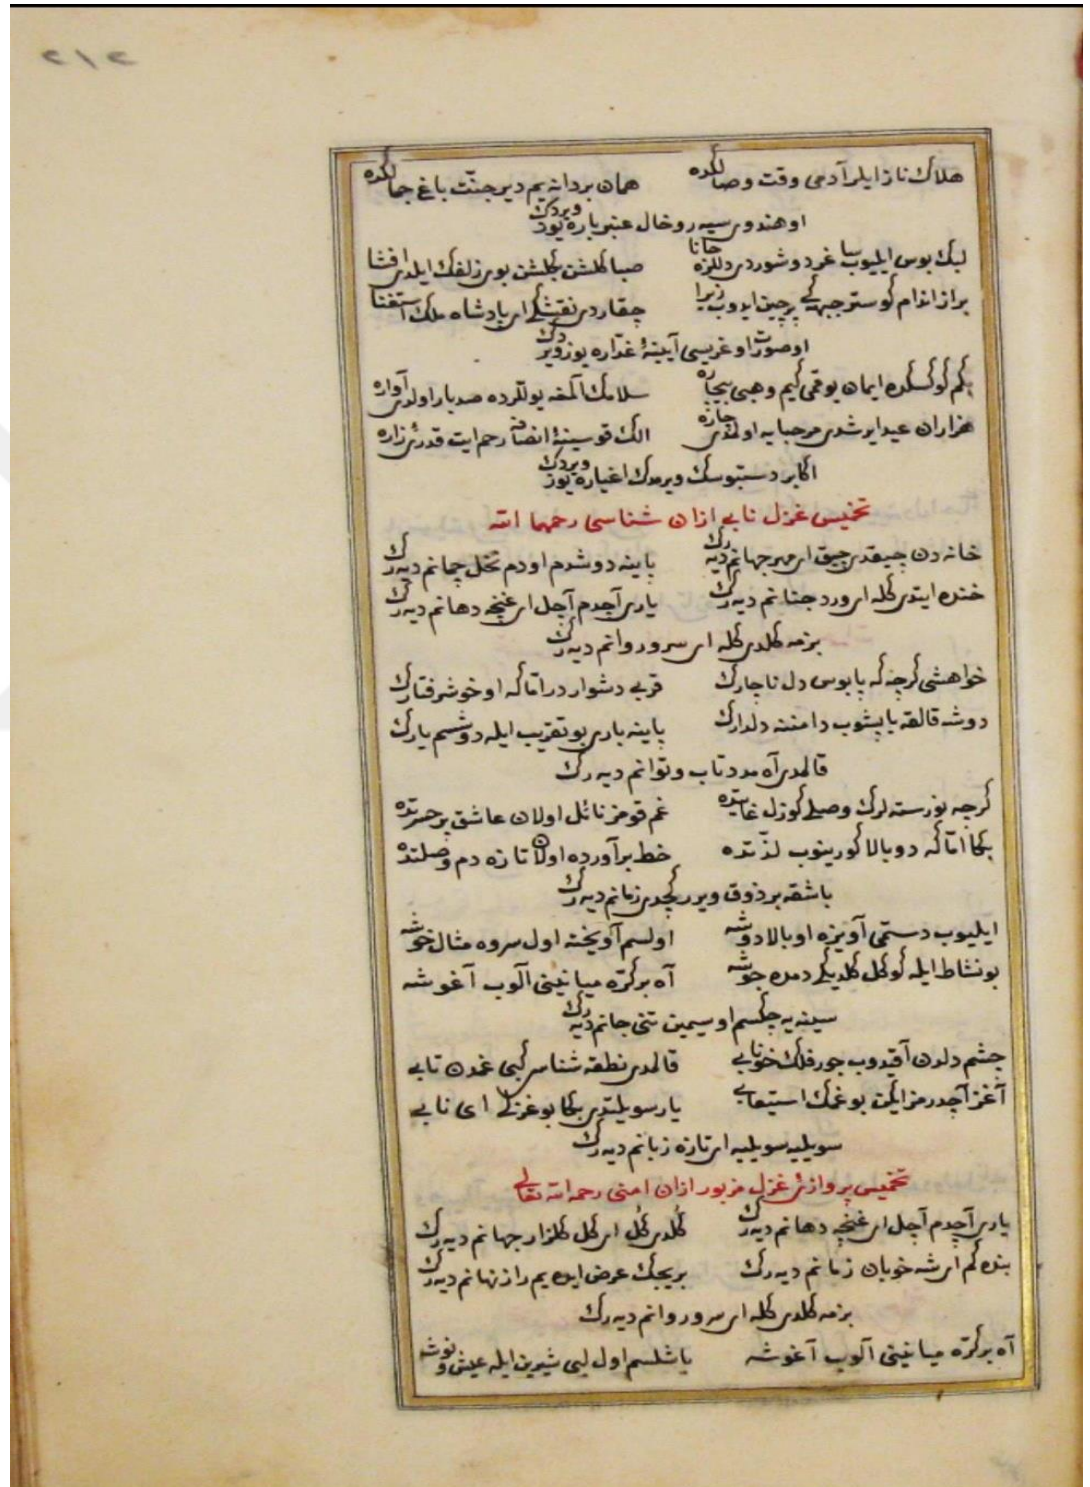 ٢١٢
هلاك ناز ايلر آدمی وقت وصالكده همان بردانه یم دیر جنّت باغ جمالكده
او هندوی سیه رو خال عنبر باره یوز ویردك
لبك بوس ایلیوب سا غر دوشوردی دللره جانا صبا كلشن بكلشن بوی زلفك ایلدی افشا
براز اندام كوستر جبهه كی پرچین ایدوب زیرا چقاردی نقشكی ای پادشاه ملك استغنا
او صورت اوغریسی آیینهٔ غدّاره یوز ویردك
بكم كوكسكده ایمان یوقمی كیم وهبی بیچاره سلامك آلمغه یوللرده صد بار اولدی آواره
هزاران عید ایرشدی مرحبایه اولمدی چاره الك قو سینهٔ انصافه رحم ایت قدرئ زاره
اكا بر دستبوسك ویرمدك اغیاره یوز ویردك
تخمیس غزل نابی ازان شناسی رحمهما الله
خانه دن چیقدی چیق ای مهر جهانم دیه رك پاینه دوشدم اودم نخل چمانم دیه رك
خنده ایتدی كله ای ورد جنانم دیه رك یاری آچدم آچل ای غنچه دهانم دیه رك
بزمه كلدی كله ای سرو روانم دیه رك
خواهشی كرچه كه پابوس دل ناچارك قربی دشوار در امّا كه او خوش رفتارك
دوشه قالقه یاپشوب دامننه دلدارك پاینه باری بو تقریب ایله دوشسم یارك
قالمدی آه مدد تاب و توانم دیه رك
كرچه نورسته لرك وصلی كوزل غایتده غم قومز نائل اولان عاشق پر حسرتده
بكا امّا كه دوبالا كورینوب لذّتده خط برآورده اولان تازه دم وصلتده
باشقه بر ذوق ویرر كچدی زمانم دیه رك
ایلیوب دستمی آویزه او بالا دوشه اولسم آویخته اول سروه مثال خوشه
بو نشاط ایله كوكل كلدیكی دمده جوشه آه بر كرّه میاننی آلوب آغوشه
سینه یه چكسم او سیمین تنی جانم دیه رك
چشم دلدن آقیدوب جور فلك خونابی قالمدی نطقه شناسی كبی غمدن تابی
آغز آچدرمز ایكن بو غمك استیعابی یار سویلتدی بكا بو غزلی ای نابی
سویلیه سویلیه ای تازه زبانم دیه رك
تخمیس پروازئ غزل مزبور ازان امنی رحمه الله تعالی
یاری آچدم آچل ای غنچه دهانم دیه رك كلدی كل ای كل كلزار جهانم دیه رك
بنده كم ای شه خوبان زمانم دیه رك بریجك عرض ایده یم راز نهانم دیه رك
بزمه كلدی كله ای سرو روانم دیه رك
آه بر كرّه میاننی آلوب آغوشه باشلسم اول لبی شیرین ایله عیش و نوشه